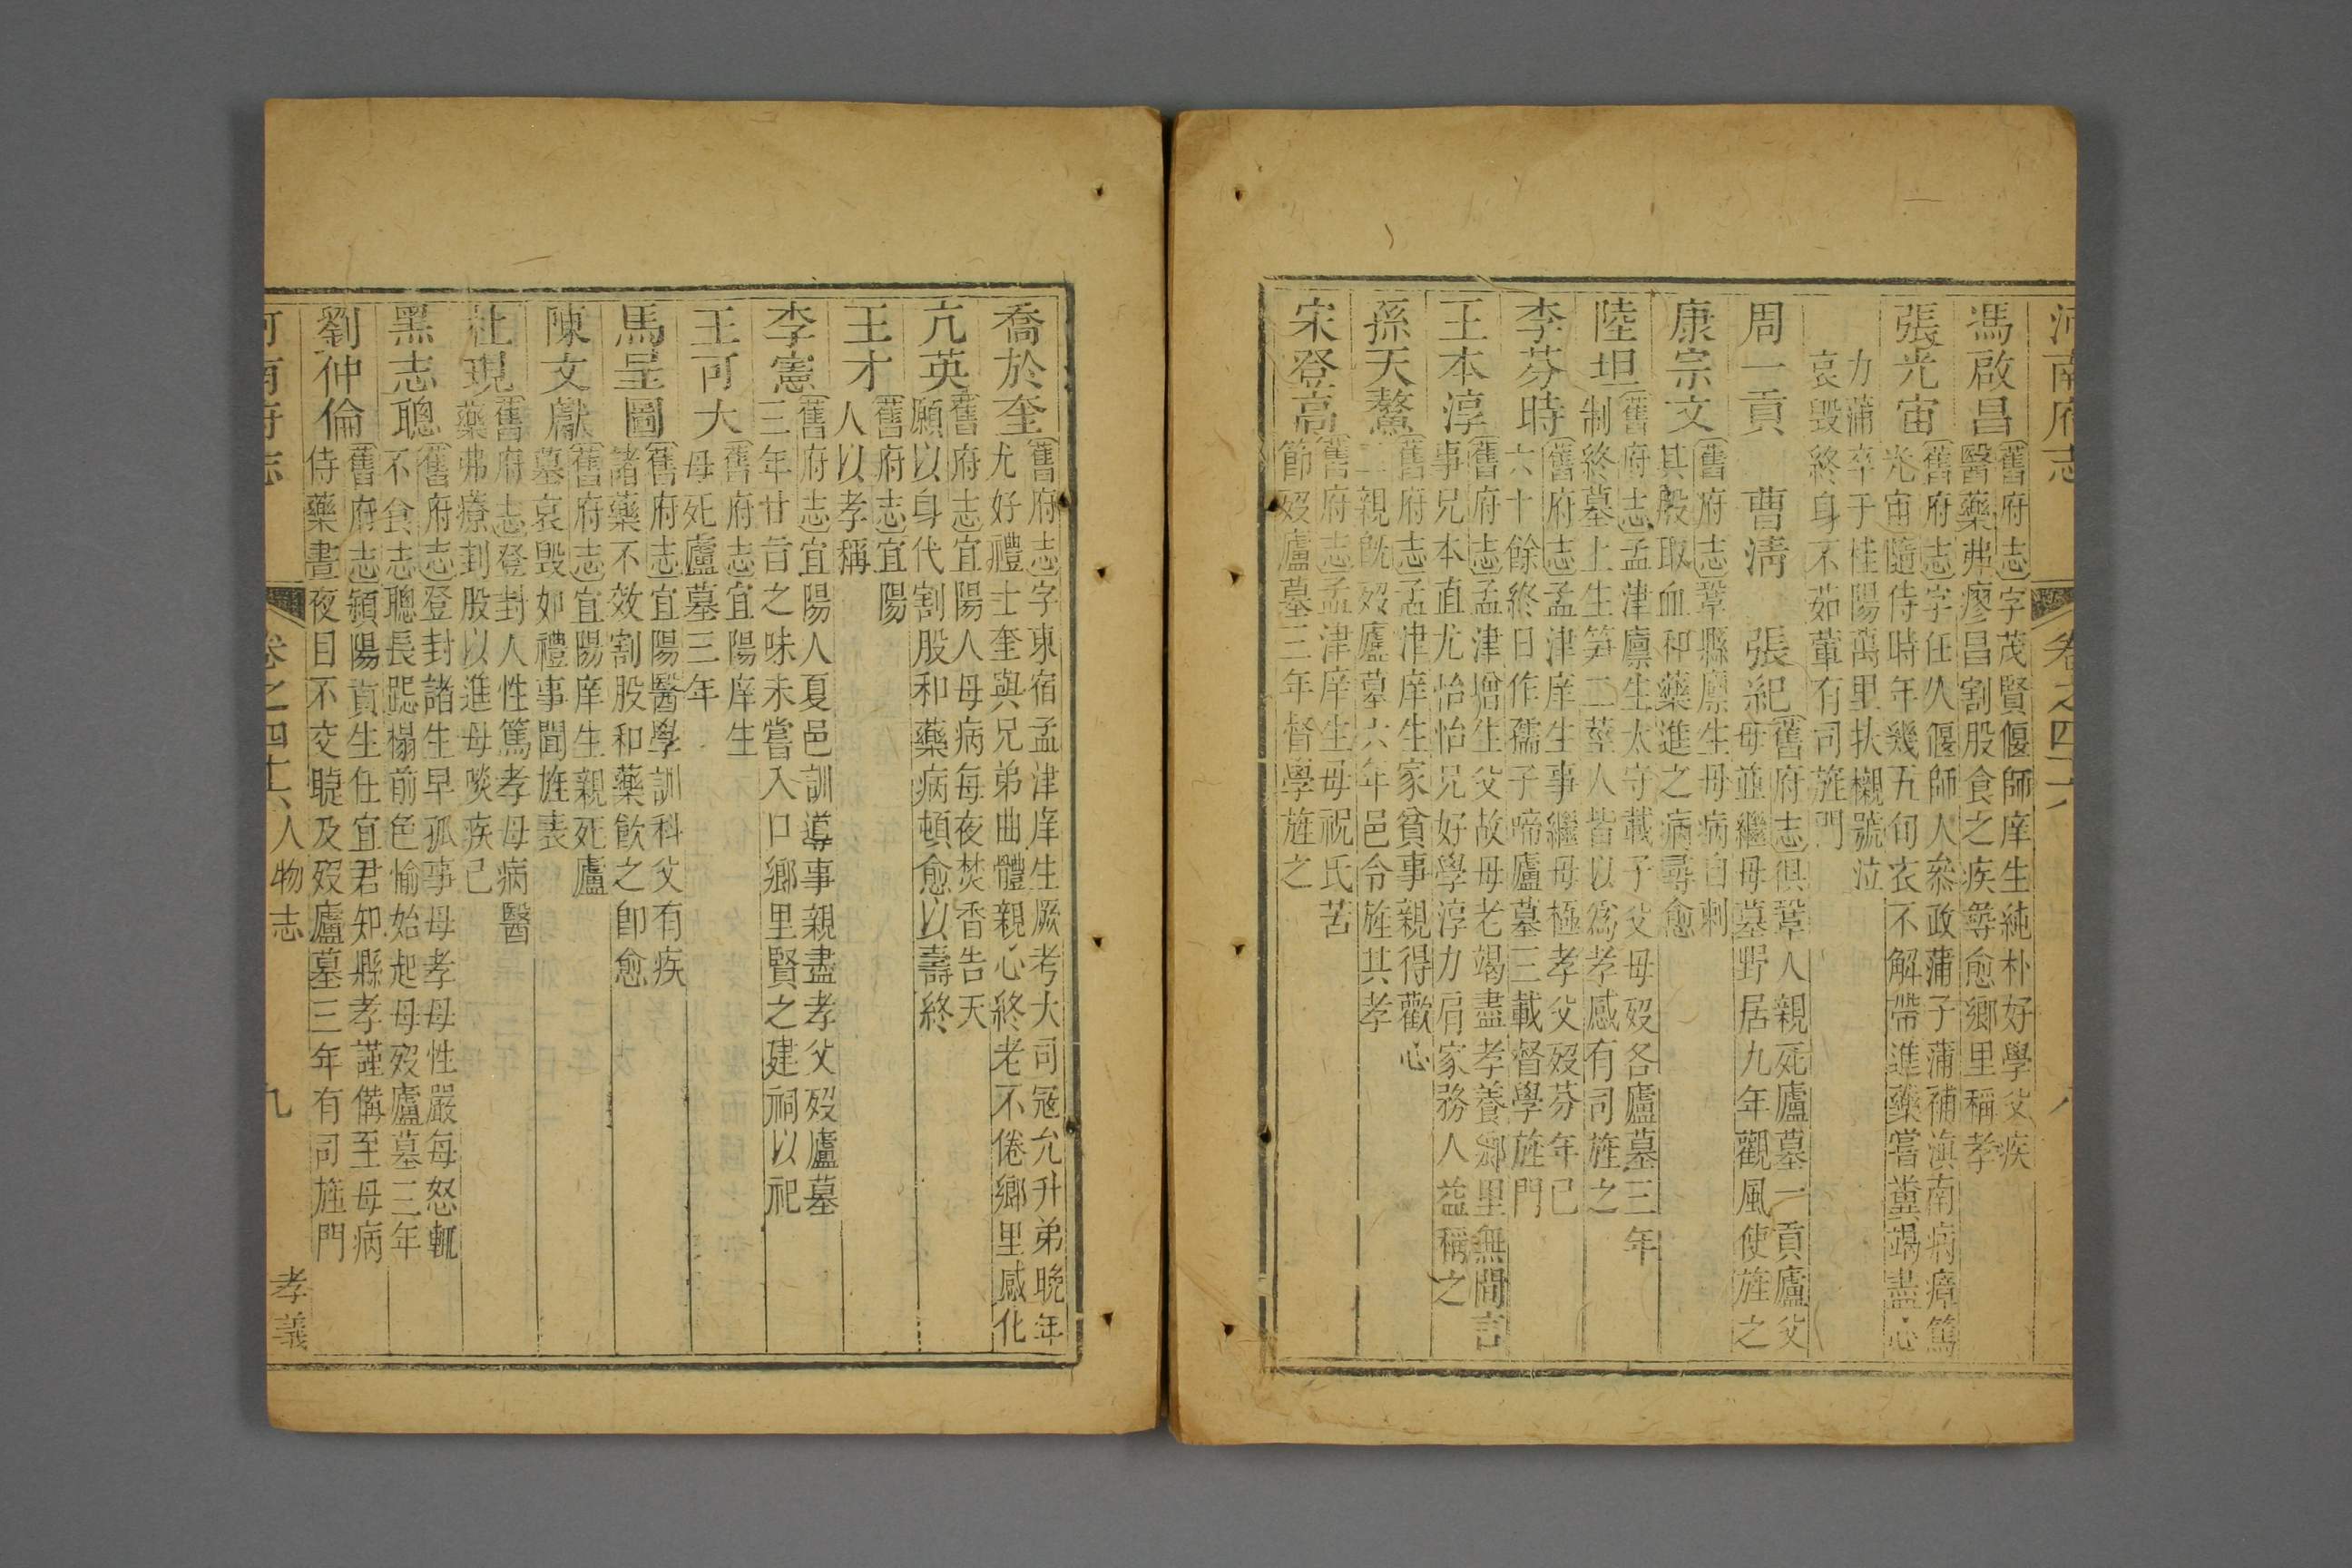 河南府志 卷之四十六 八
馮啟昌
舊府志字茂賢偃師庠生純朴好學父疾
醫藥弗瘳昌割股食之疾尋愈鄉里稱孝
張光宙
舊府志字任久偃師人叅政蒲子蒲補滇南病瘴篤
光宙隨侍時年幾五旬衣不解帶進藥嘗糞竭盡心
力蒲卒于桂陽萬里扶櫬號泣
哀毀終身不茹葷有司旌門
周一貢 曹清 張紀
舊府志俱鞏人親死廬墓一貢廬父
母並繼母墓野居九年觀風使旌之
康宗文
舊府志鞏縣廪生母病自刺
其股取血和藥進之病尋愈
陸坦
舊府志孟津廪生太守載子父母歿各廬墓三年
制終墓上生笋二莖人皆以爲孝感有司旌之
李芬時
舊府志孟津庠生事繼母極孝父歿芬年已
六十餘終日作孺子啼廬墓三載督學旌門
王本淳
舊府志孟津增生父故母老竭盡孝養鄉里無間言
事兄本直尤怡怡兄好學淳力肩家務人益稱之
孫天鰲
舊府志孟津庠生家貧事親得歡心
二親既歿廬墓六年邑令旌其孝
宋登高
舊府志孟津庠生母祝氏苦
節歿廬墓三年督學旌之
喬於奎
舊府志字東宿孟津庠生厥考大司冦允升弟晚年
尤好禮士奎與兄弟曲體親心終老不倦鄉里感化
亢英
舊府志宜陽人母病每夜焚香告天
願以身代割股和藥病頓愈以壽終
王才
舊府志宜陽
人以孝稱
李憲
舊府志宜陽人夏邑訓導事親盡孝父歿廬墓
三年廿旨之味未嘗入口鄉里賢之建祠以祀
王可大
舊府志宜陽庠生
母死廬墓三年
馬呈圖
舊府志宜陽醫學訓科父有疾
諸藥不效割股和藥飲之卽愈
陳文獻
舊府志宜陽庠生親死廬
墓哀毀如禮事聞旌表
杜現
舊府志登封人性篤孝母病醫
藥弗療刲股以進母啖疾已
黑志聰
舊府志登封諸生早孤事母孝母性嚴每怒輒
不食志聰長跽榻前色愉始起母歿廬墓三年
劉仲倫
舊府志潁陽貢生任宜君知縣孝謹備至母病
侍藥晝夜目不交睫及歿廬墓三年有司旌門
河南府志 卷之四十六 人物志 九 孝義